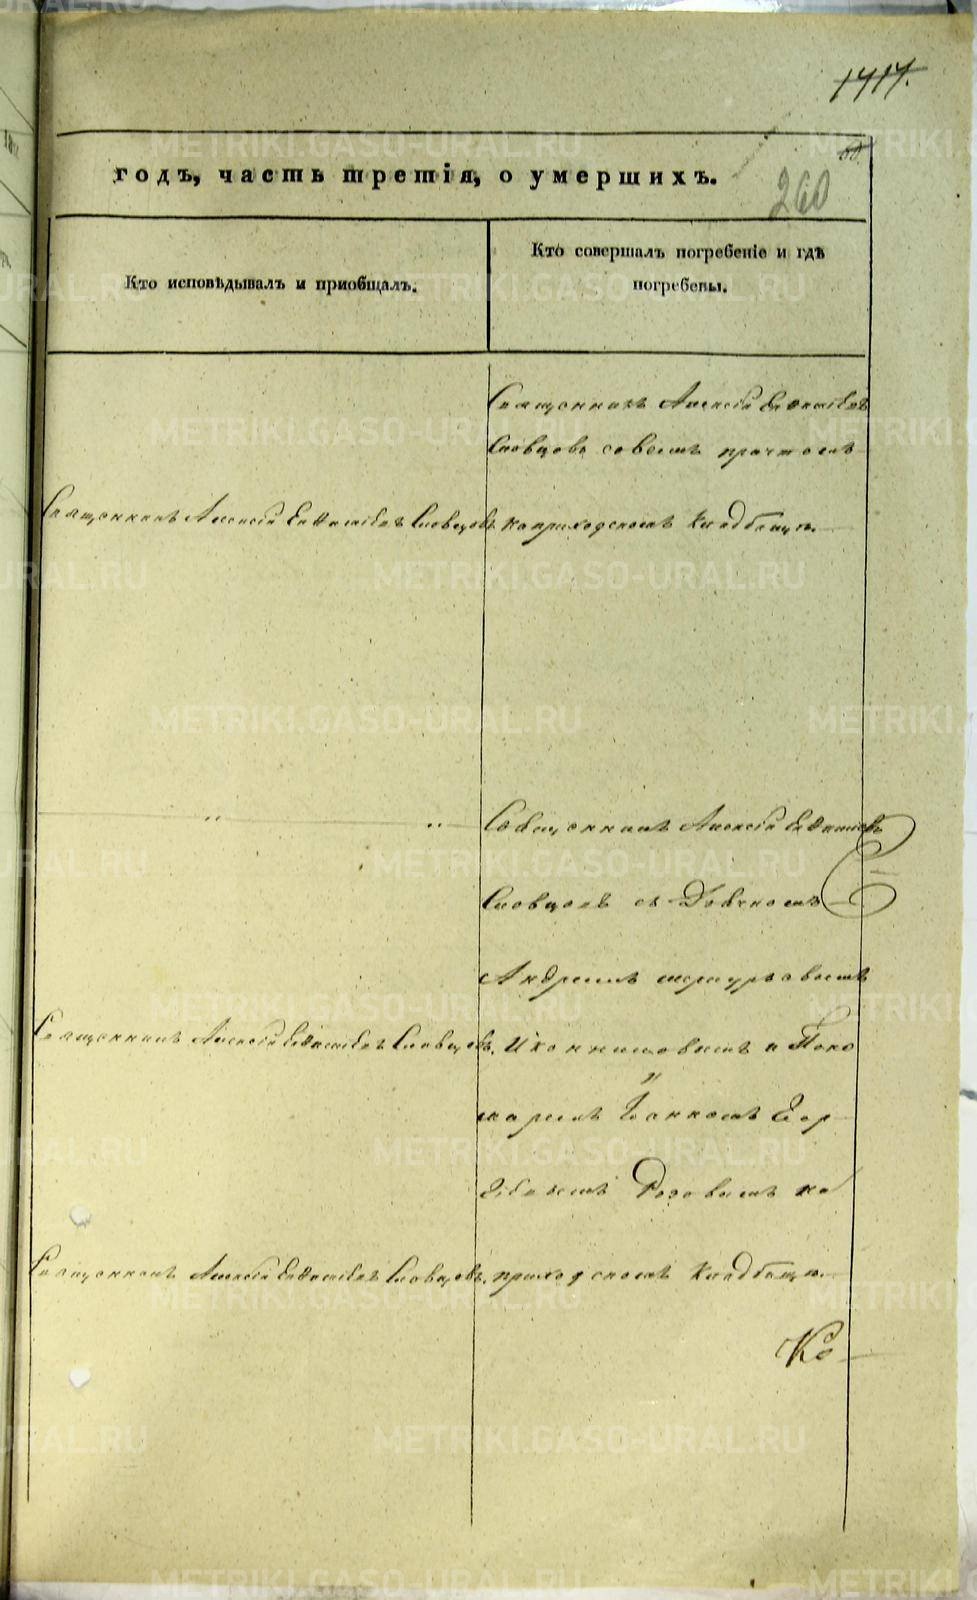 1414.
годъ, часть третія, о умершихъ.
260
Кто исповѣдывалъ и пріобщалъ.
Кто совершалъ погребеніе и гдѣ
погребены.
Священникъ Алексѣй Евѳиміевъ
Словцовъ совсемъ причтомъ
Священникъ Алексѣй Евѳиміевъ Словцовъ
на приходскомъ кладбищѣ.
Священникъ Алексѣй Евѳиміевъ
Словцовъ съ Дьячкомъ
Андреемъ
Священникъ Алексѣй Евѳиміевъ Словцовъ.
Иконниковымъ и Поно
маремъ Іоанномъ Геор
гіевымъ на
Священникъ Алексѣй Евѳиміевъ Словцовъ.
приходскомъ кладбищѣ.
Ко
METRIKI.GASO-URAL.RU